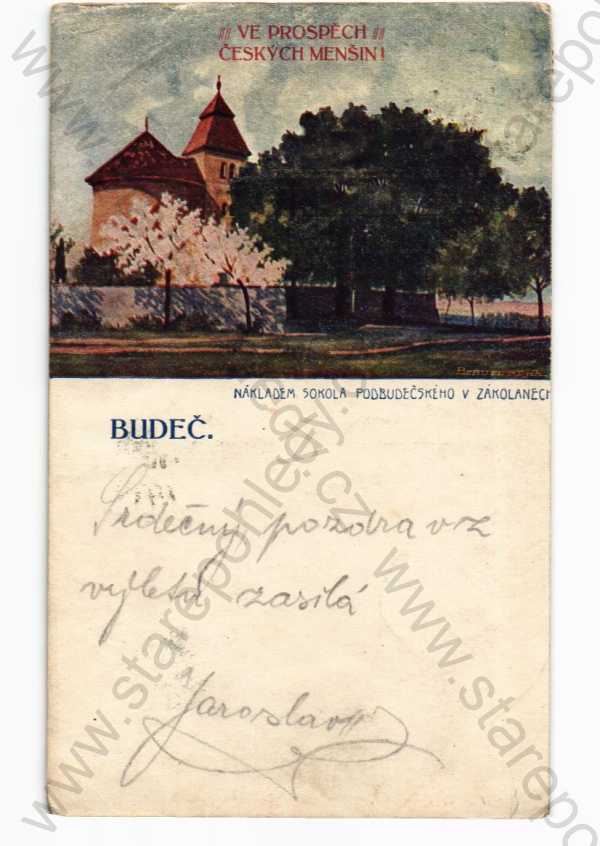 〃 VE PROSPĚCH 〃
ČESKÝCH MENŠIN!
NÁKLADEM SOKOLA PODBUDEČSKÉHO V ZÁKOLANECH
BUDEČ.
Srdečný pozdrav z
výletu zasílá
Jaroslav
www.starepohledy.cz